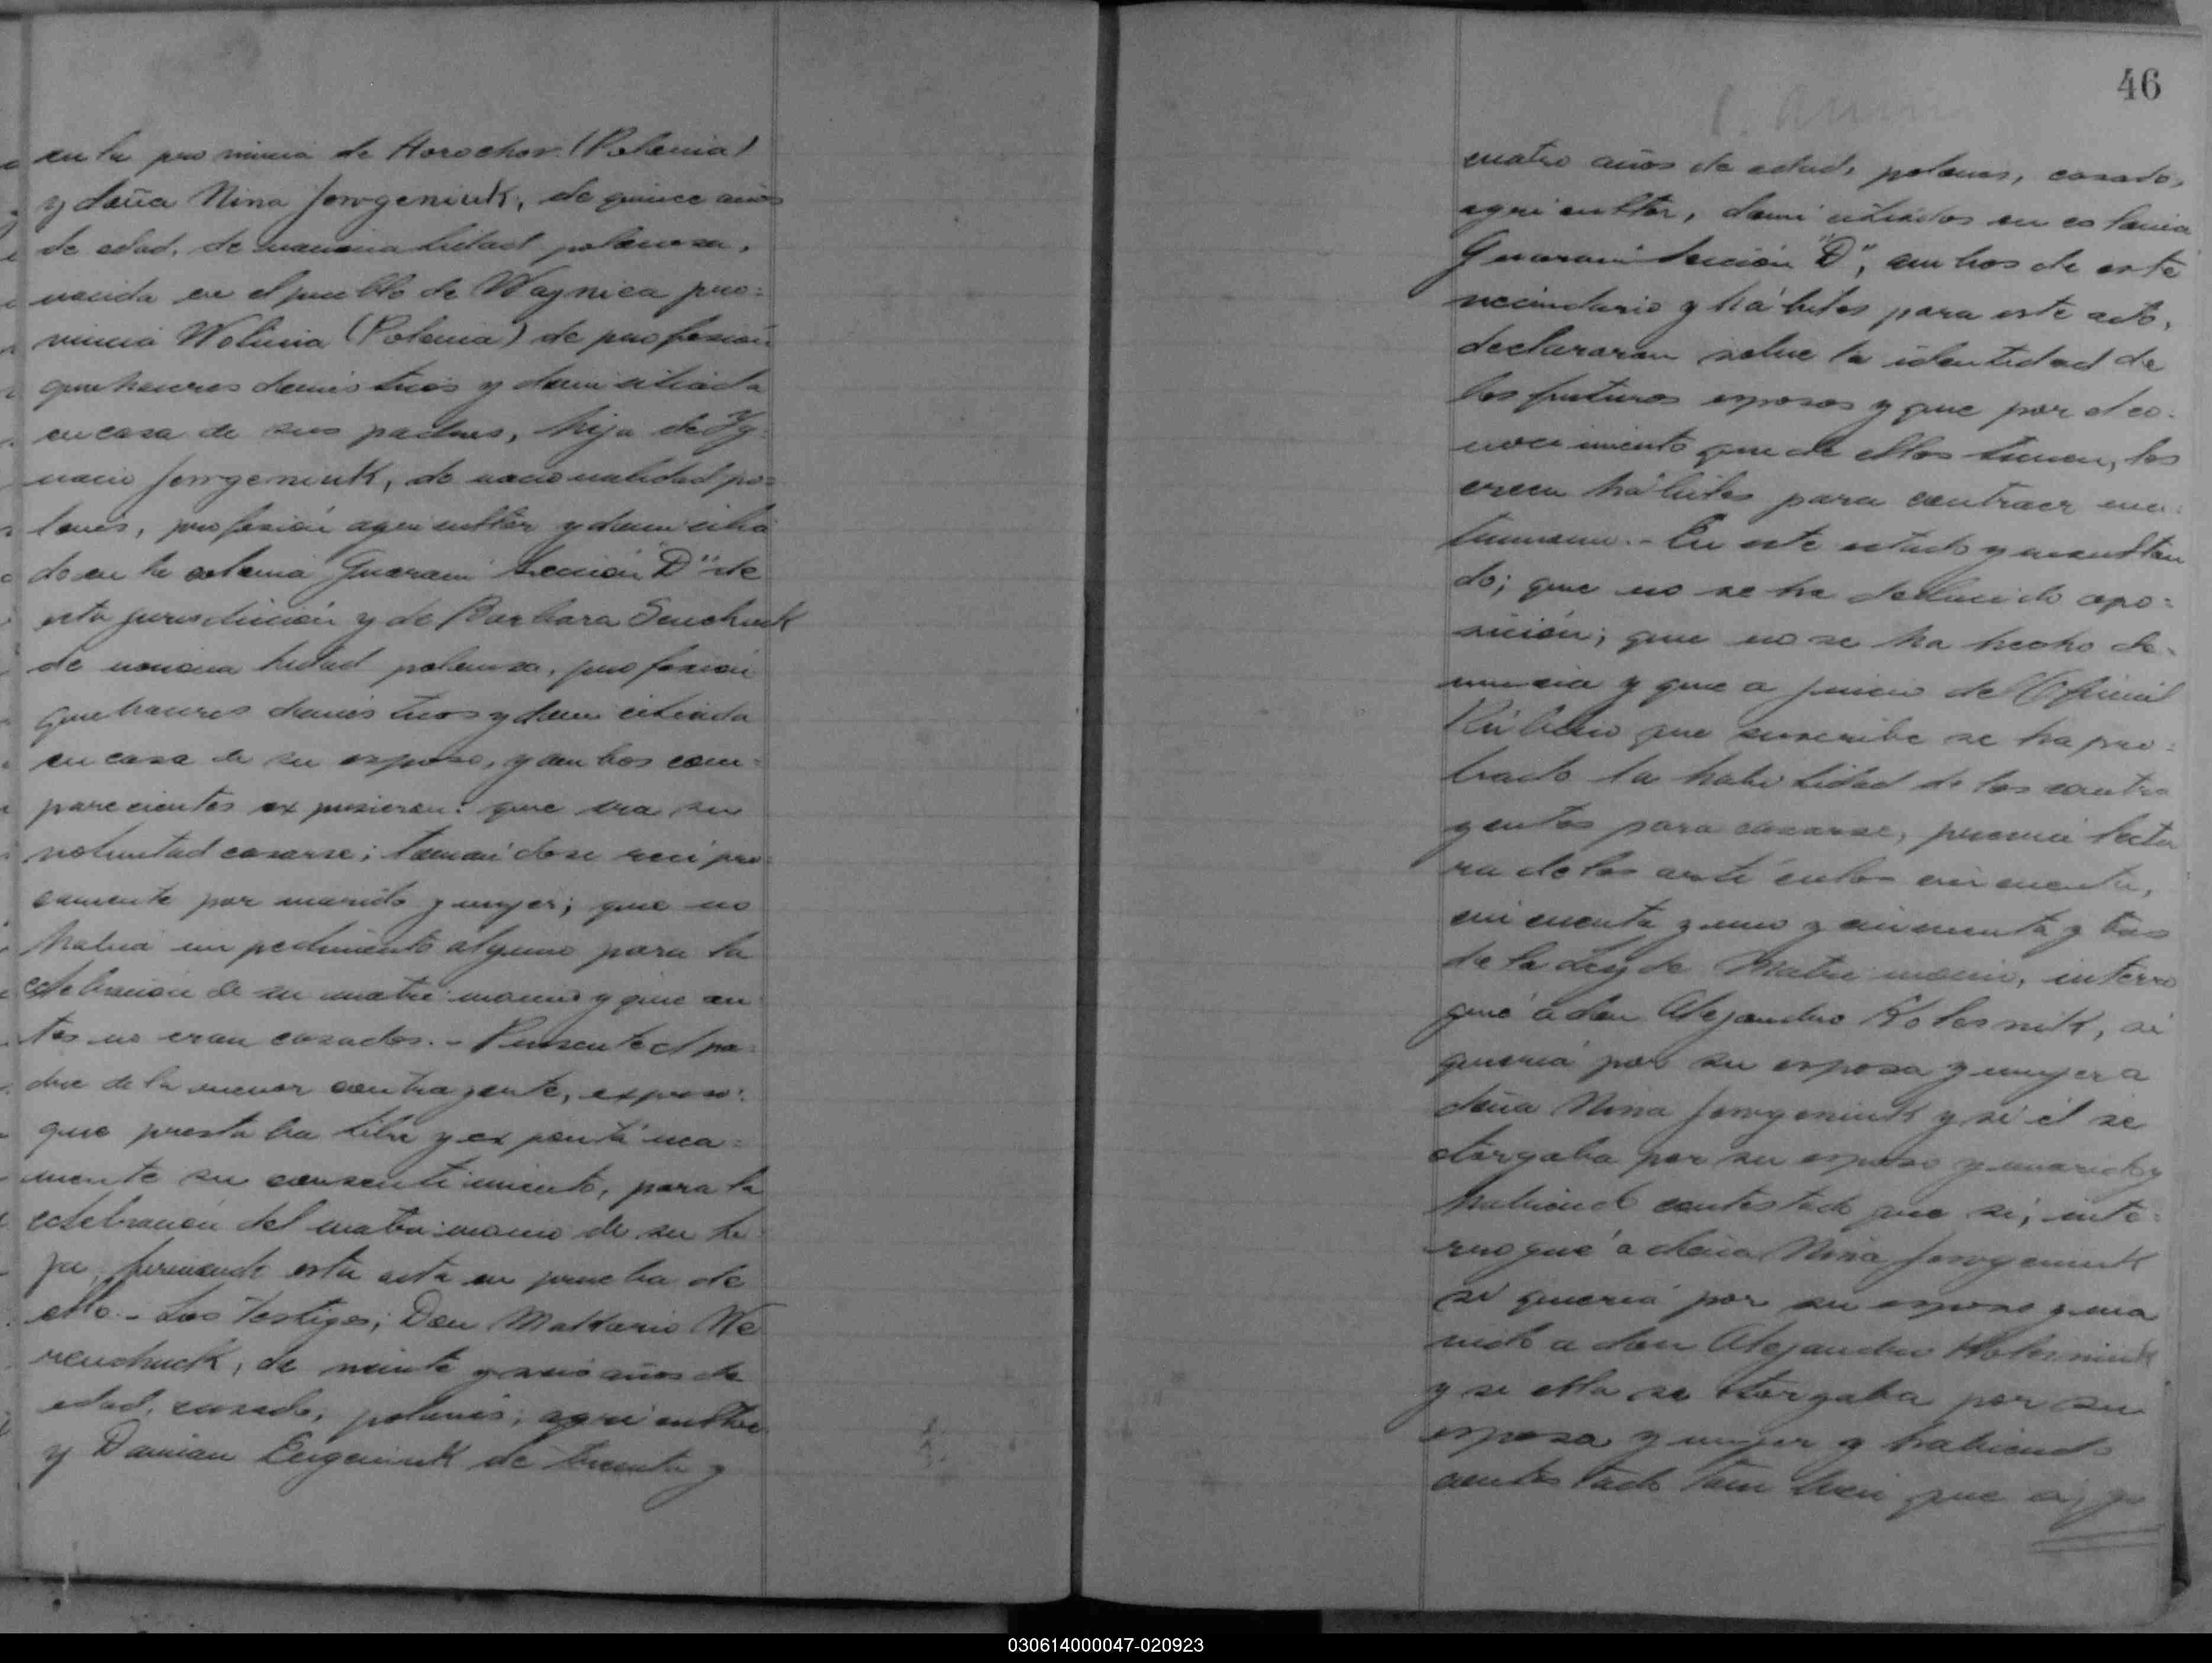 en la provincia de Horochov (Polonia)
y doña Nina Jewgeniuk, de quince años
de edad, de nacionalidad polonesa,
nacida en el pueblo de Waynica pro-
vincia Wolinia (Polonia) de profesión
quehaceres domésticos y domiciliada
en casa de sus padres, hija de Yg-
nacio Jewgeniuk, de nacionalidad po-
lonés, profesión agricultor y domicilia
do en la colonia Guaraní Sección "D" de
esta jurisdicción y de Barbara Senchuk
de nacionalidad polonesa, profesión
quehaceres domésticos y domiciliada
en casa de su esposo, y ambos com-
parecientes expusieron: que era su
voluntad casarse; tomándose recipro-
camente por marido y mujer; que no
había impedimento alguno para la
celebración de su matrimonio y que an
tes no eran casados. - Presente el pa-
dre de la menor contrayente, expuso:
que prestaba libre y expontánea-
mente su consentimiento, para la
celebración del matrimonio de su hi-
ja, firmando esta acta en prueba de
ello. - Los Testigos; Don Makario We
renchuck, de veinte y seis años de
edad, casado, polonés, agricultor
y Damian Eugeniuk de treinta y
46
cuatro años de edad, polones, casado,
agricultor, domiciliados en colonia
Guaraní Sección "D", ambos de este
vecindario y hábiles para este acto,
declararon sobre la identidad de
los futuros esposos y que por el co-
nocimiento que de ellos tienen, los
creen hábiles para contraer ma-
trimonio. - En este estado y resultan
do; que no se ha deducido opo-
sición; que no se ha hecho de-
nuncia y que a juicio del Oficial
Público que suscribe se ha pro-
bado la habilidad de los contra
yentes para casarse, previa lectu
ra de los artículos cincuenta,
cincuenta y uno y cincuenta y tres
de la Ley de Matrimonio, interro
gué a don Alejandro Kolesnik, si
quería por su esposa y mujer a
doña Nina Jewgeniuk y si él se
otorgaba por su esposo y marido y
habiendo contestado que si; inte-
rrogué a doña Nina Jewgeniuk
si quería por su esposo y ma
rido a don Alejandro Kolesniuk
y si ella se otorgaba por su
esposa y mujer y habiendo
contestado tambien que si; yo
030614000047-020923